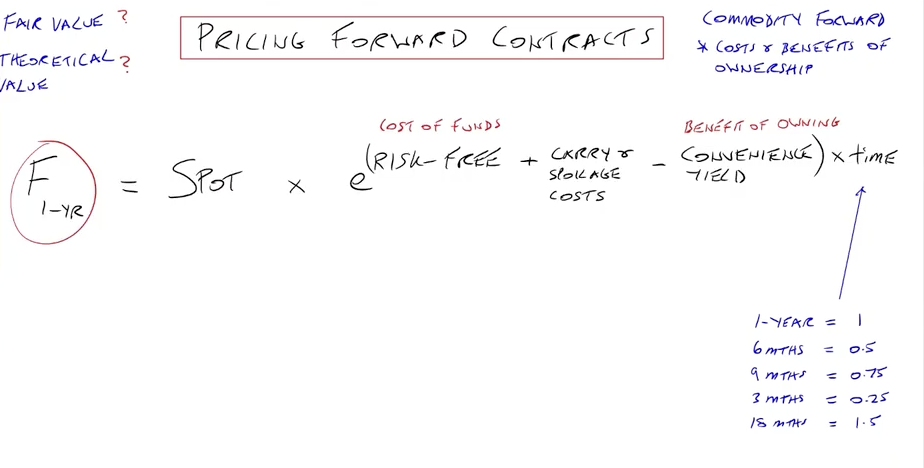 FAIR VALUE ?
THEORETICAL ?
VALUE
PRICING FORWARD CONTRACTS
COMMODITY FORWARD
* COSTS & BENEFITS OF
OWNERSHIP
COST OF FUNDS
BENEFIT OF OWNING
F 1-YR = SPOT × e^(RISK-FREE + CARRY & SPOILAGE COSTS - CONVENIENCE YIELD) × time
1-YEAR = 1
6 MTHS = 0.5
9 MTHS = 0.75
3 MTHS = 0.25
18 MTHS = 1.5